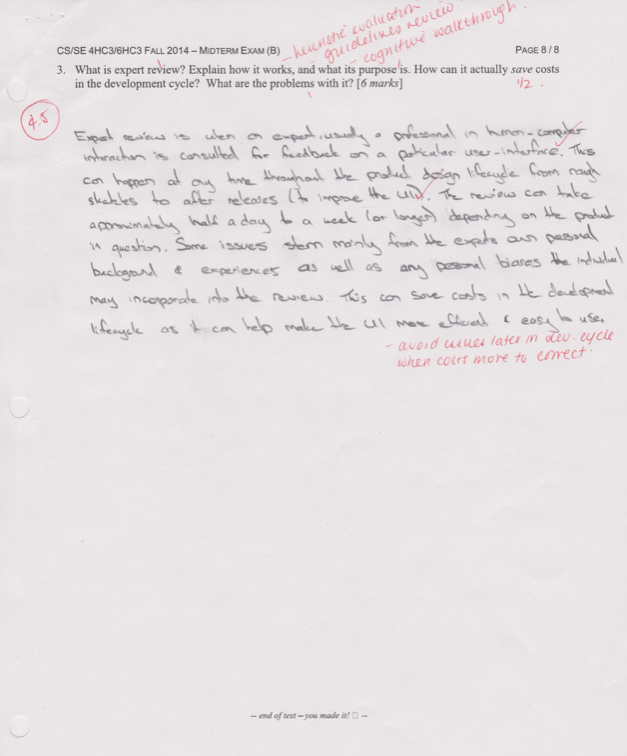 - heuristic evaluation
- guidelines review
- cognitive walkthrough.
CS/SE 4HC3/6HC3 FALL 2014 – MIDTERM EXAM (B) PAGE 8 / 8
3. What is expert review? Explain how it works, and what its purpose is. How can it actually save costs
in the development cycle? What are the problems with it? [6 marks]
1/2 .
4.5
Expert review is when an expert, usually a professional in human-computer
interaction is consulted for feedback on a particular user-interface. This
can happen at any time throughout the product design lifecycle from rough
sketches to after releases (to improve the UI). The review can take
approximately half a day to a week (or longer) depending on the product
in question. Some issues stem mainly from the experts own personal
background & experiences as well as any personal biases the individual
may incorporate into the review. This can save costs in the development
lifecycle as it can help make the UI more efficient & easy to use.
- avoid issues later in dev. cycle
when costs more to correct.
-- end of test – you made it! □ --